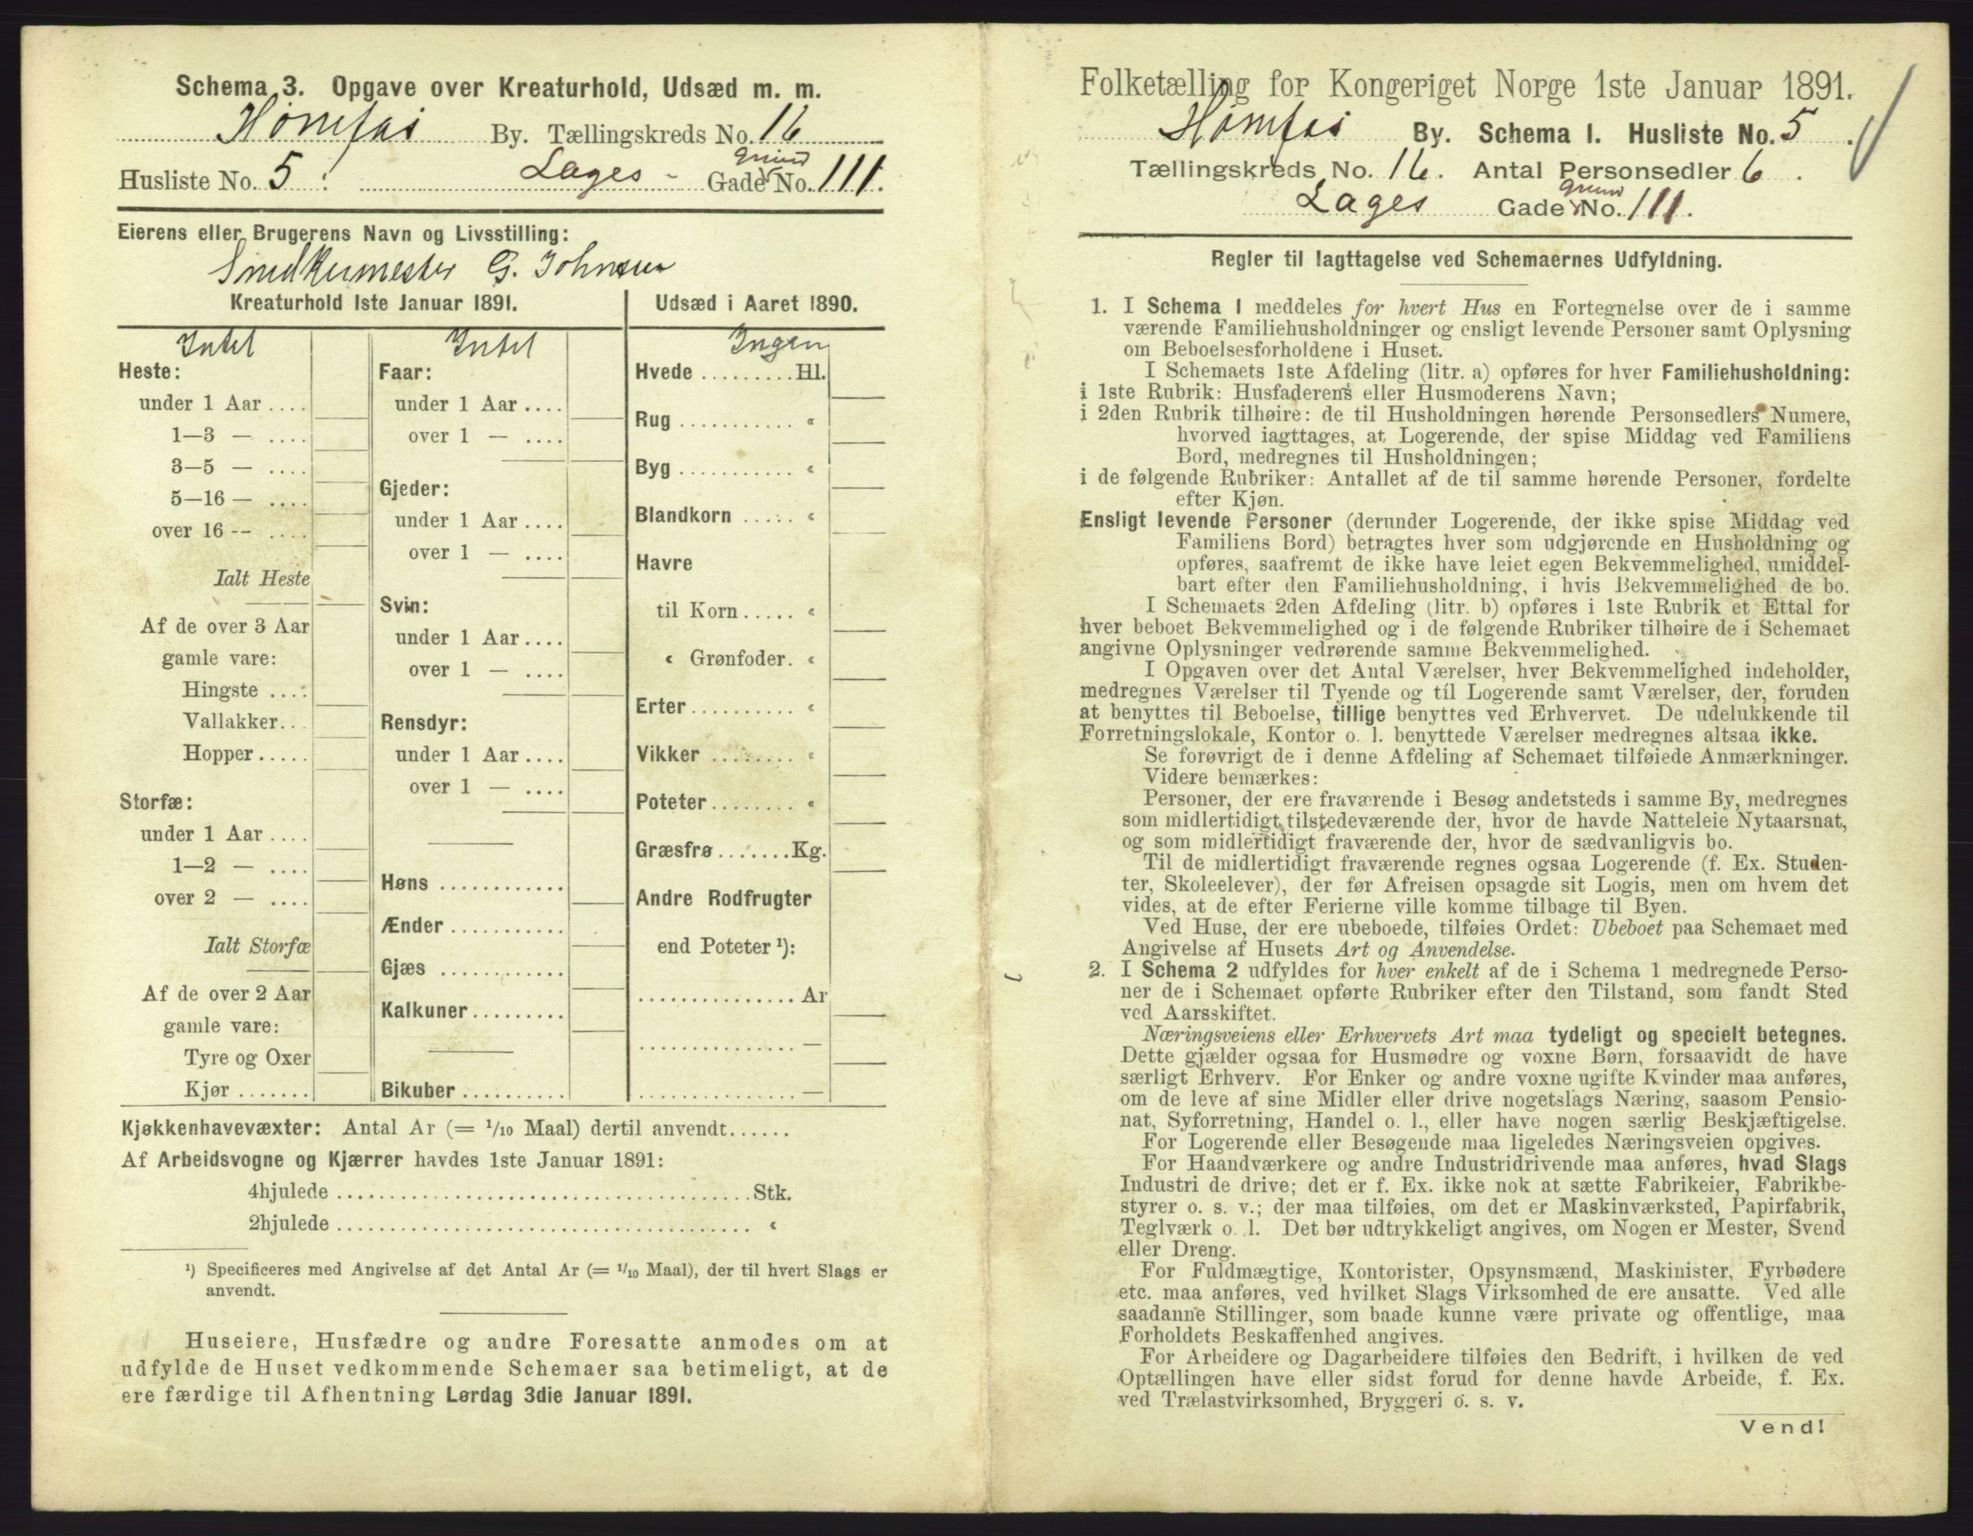 Schema 3. Opgave over Kreaturhold, Udsæd m. m.
Hønefos By. Tællingskreds No. 16
Husliste No. 5. Lages - Gade Grund No. 111.
Eierens eller Brugerens Navn og Livsstilling:
Snedkermester G. Johnsen
Kreaturhold 1ste Januar 1891.
Udsæd i Aaret 1890.
Intet
Heste:
under 1 Aar ....
1—3 — ....
3—5 — ....
5—16 — ....
over 16 -- ....
Ialt Heste
Af de over 3 Aar
gamle vare:
Hingste ....
Vallakker...
Hopper.....
Storfæ:
under 1 Aar ....
1—2 — ....
over 2 — ....
Ialt Storfæ
Af de over 2 Aar
gamle vare:
Tyre og Oxer
Kjør .......
Intet
Faar:
under 1 Aar ....
over 1 — ....
Gjeder:
under 1 Aar ....
over 1 — ....
Svin:
under 1 Aar ....
over 1 — ....
Rensdyr:
under 1 Aar ....
over 1 — ....
Høns ............
Ænder ...........
Gjæs ............
Kalkuner.........
Bikuber..........
Ingen
Hvede .........Hl.
Rug ........... «
Byg ........... «
Blandkorn ..... «
Havre
til Korn..... «
« Grønfoder. «
Erter.......... «
Vikker ........ «
Poteter........ «
Græsfrø.......Kg.
Andre Rodfrugter
end Poteter ¹):
...............Ar
............... —
............... —
Kjøkkenhavevæxter: Antal Ar (= 1/10 Maal) dertil anvendt......
Af Arbeidsvogne og Kjærrer havdes 1ste Januar 1891:
4hjulede ........................................Stk.
2hjulede ........................................ «
¹) Specificeres med Angivelse af det Antal Ar (= 1/10 Maal), der til hvert Slags er
anvendt.
Huseiere, Husfædre og andre Foresatte anmodes om at
udfylde de Huset vedkommende Schemaer saa betimeligt, at de
ere færdige til Afhentning Lørdag 3die Januar 1891.
Folketælling for Kongeriget Norge 1ste Januar 1891.
Hønefos By. Schema 1. Husliste No. 5.
Tællingskreds No. 16. Antal Personsedler 6.
Lages Gade Grund No. 111.
Regler til Iagttagelse ved Schemaernes Udfyldning.
1. I Schema 1 meddeles for hvert Hus en Fortegnelse over de i samme
værende Familiehusholdninger og ensligt levende Personer samt Oplysning
om Beboelsesforholdene i Huset.
I Schemaets 1ste Afdeling (litr. a) opføres for hver Familiehusholdning:
i 1ste Rubrik: Husfaderens eller Husmoderens Navn;
i 2den Rubrik tilhøire: de til Husholdningen hørende Personsedlers Numere,
hvorved iagttages, at Logerende, der spise Middag ved Familiens
Bord, medregnes til Husholdningen;
i de følgende Rubriker: Antallet af de til samme hørende Personer, fordelte
efter Kjøn.
Ensligt levende Personer (derunder Logerende, der ikke spise Middag ved
Familiens Bord) betragtes hver som udgjørende en Husholdning og
opføres, saafremt de ikke have leiet egen Bekvemmelighed, umiddel-
bart efter den Familiehusholdning, i hvis Bekvemmelighed de bo.
I Schemaets 2den Afdeling (litr. b) opføres i 1ste Rubrik et Ettal for
hver beboet Bekvemmelighed og i de følgende Rubriker tilhøire de i Schemaet
angivne Oplysninger vedrørende samme Bekvemmelighed.
I Opgaven over det Antal Værelser, hver Bekvemmelighed indeholder,
medregnes Værelser til Tyende og til Logerende samt Værelser, der, foruden
at benyttes til Beboelse, tillige benyttes ved Erhvervet. De udelukkende til
Forretningslokale, Kontor o. l. benyttede Værelser medregnes altsaa ikke.
Se forøvrigt de i denne Afdeling af Schemaet tilføiede Anmærkninger.
Videre bemærkes:
Personer, der ere fraværende i Besøg andetsteds i samme By, medregnes
som midlertidigt tilstedeværende der, hvor de havde Natteleie Nytaarsnat,
og som midlertidigt fraværende der, hvor de sædvanligvis bo.
Til de midlertidigt fraværende regnes ogsaa Logerende (f. Ex. Studen-
ter, Skoleelever), der før Afreisen opsagde sit Logis, men om hvem det
vides, at de efter Ferierne ville komme tilbage til Byen.
Ved Huse, der ere ubeboede, tilføies Ordet: Ubeboet paa Schemaet med
Angivelse af Husets Art og Anvendelse.
2. I Schema 2 udfyldes for hver enkelt af de i Schema 1 medregnede Perso-
ner de i Schemaet opførte Rubriker efter den Tilstand, som fandt Sted
ved Aarsskiftet.
Næringsveiens eller Erhvervets Art maa tydeligt og specielt betegnes.
Dette gjælder ogsaa for Husmødre og voxne Børn, forsaavidt de have
særligt Erhverv. For Enker og andre voxne ugifte Kvinder maa anføres,
om de leve af sine Midler eller drive nogetslags Næring, saasom Pensio-
nat, Syforretning, Handel o. l., eller have nogen særlig Beskjæftigelse.
For Logerende eller Besøgende maa ligeledes Næringsveien opgives.
For Haandværkere og andre Industridrivende maa anføres, hvad Slags
Industri de drive; det er f. Ex. ikke nok at sætte Fabrikeier, Fabrikbe-
styrer o. s. v.; der maa tilføies, om det er Maskinværksted, Papirfabrik,
Teglværk o. l. Det bør udtrykkeligt angives, om Nogen er Mester, Svend
eller Dreng.
For Fuldmægtige, Kontorister, Opsynsmænd, Maskinister, Fyrbødere
etc. maa anføres, ved hvilket Slags Virksomhed de ere ansatte. Ved alle
saadanne Stillinger, som baade kunne være private og offentlige, maa
Forholdets Beskaffenhed angives.
For Arbeidere og Dagarbeidere tilføies den Bedrift, i hvilken de ved
Optællingen have eller sidst forud for denne havde Arbeide, f. Ex.
ved Trælastvirksomhed, Bryggeri o. s. v.
Vend!